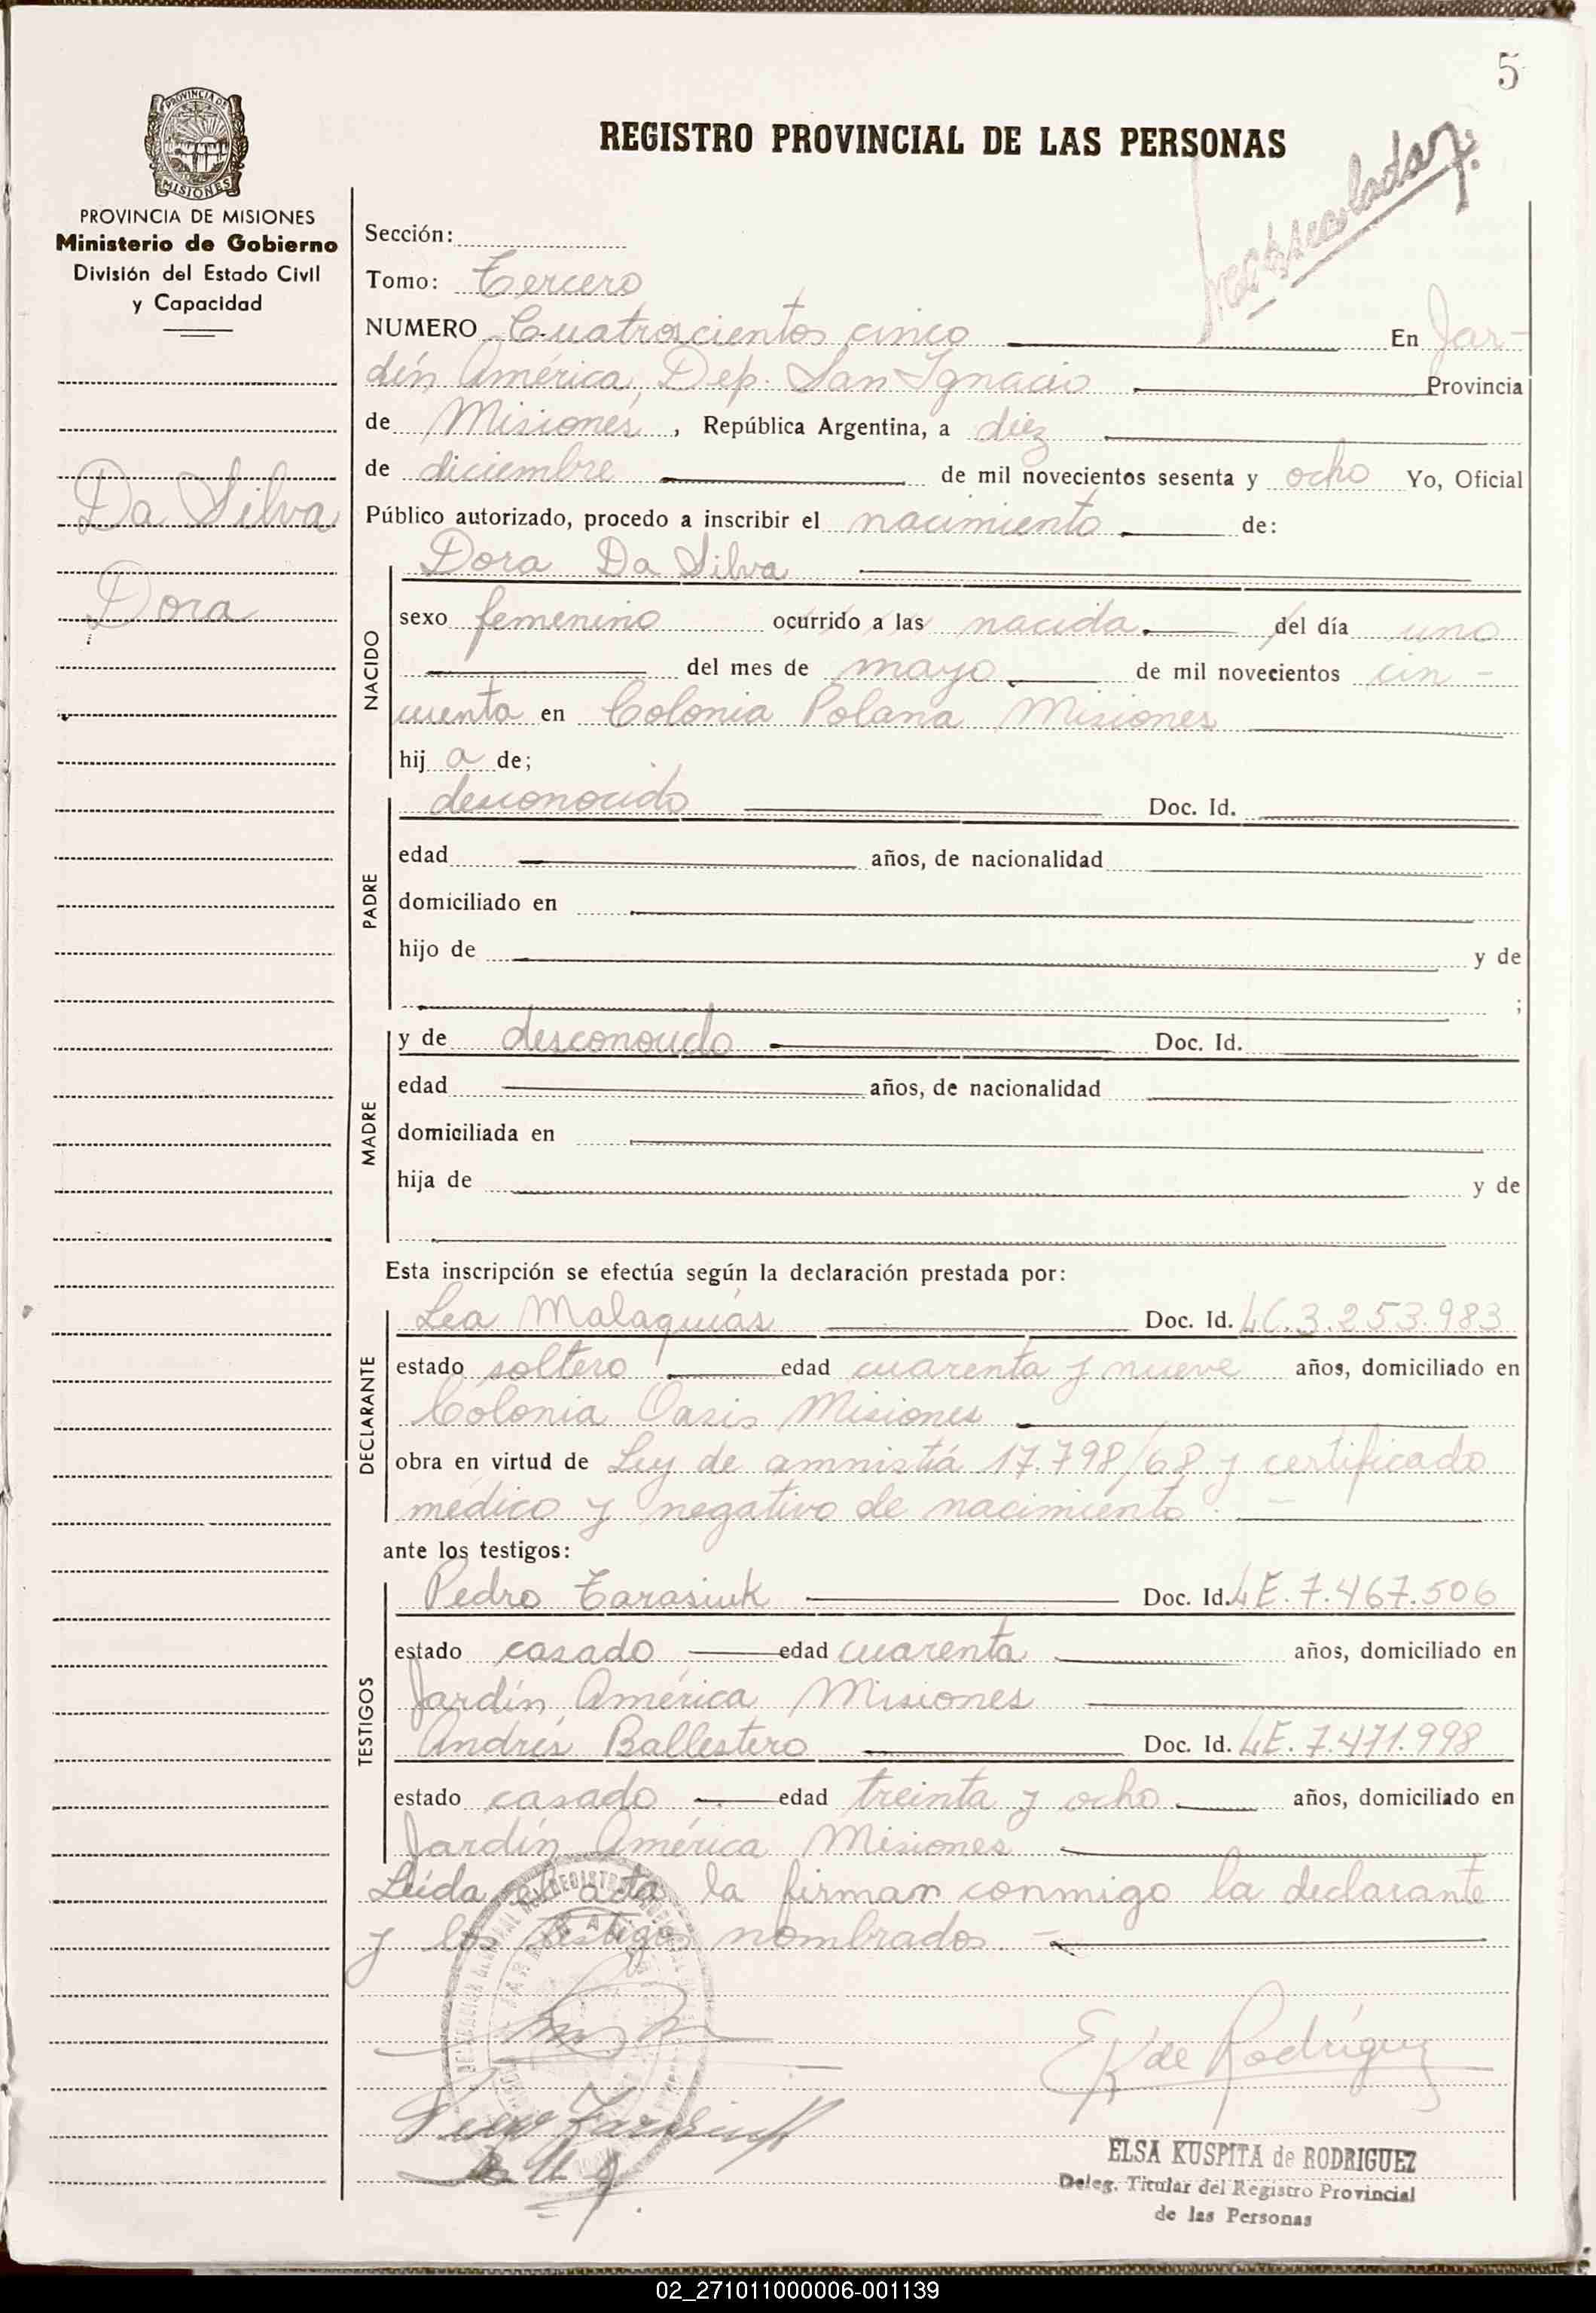 5
PROVINCIA DE
MISIONES
REGISTRO PROVINCIAL DE LAS PERSONAS
PROVINCIA DE MISIONES
Ministerio de Gobierno
División del Estado Civil
y Capacidad
Da Silva
Dora
Sección:
Tomo: Tercero
NUMERO Cuatroscientos cinco En Jar-
dín América, Dep. San Ignacio Provincia
de Misiones, República Argentina, a diez
de diciembre de mil novecientos sesenta y ocho Yo, Oficial
Público autorizado, procedo a inscribir el nacimiento de:
Dora Da Silva
NACIDO
sexo femenino ocurrido a las nacida. del día uno
del mes de mayo de mil novecientos cin-
cuenta en Colonia Polana Misiones
hij a de;
PADRE
desconocido Doc. Id.
edad años, de nacionalidad
domiciliado en
hijo de y de
;
MADRE
y de desconocido Doc. Id.
edad años, de nacionalidad
domiciliada en
hija de y de
Esta inscripción se efectúa según la declaración prestada por:
DECLARANTE
Lea Malaquias Doc. Id. LC.3.253.983
estado soltero edad cuarenta y nueve años, domiciliado en
Colonia Oasis Misiones
obra en virtud de Ley de amnistiá 17.798/68 y certificado
médico y negativo de nacimiento.
ante los testigos:
TESTIGOS
Pedro Tarasiuk Doc. Id. LE.7.467.506
estado casado edad cuarenta años, domiciliado en
Jardín América Misiones
Andrés Ballestero Doc. Id. LE.7.471.998
estado casado edad treinta y ocho años, domiciliado en
Jardín América Misiones
Leída el acta la firman conmigo la declarante
y los testigos nombrados.
EK de Rodríguez
ELSA KUSPITA de RODRIGUEZ
Deleg. Titular del Registro Provincial
de las Personas
02_271011000006-001139